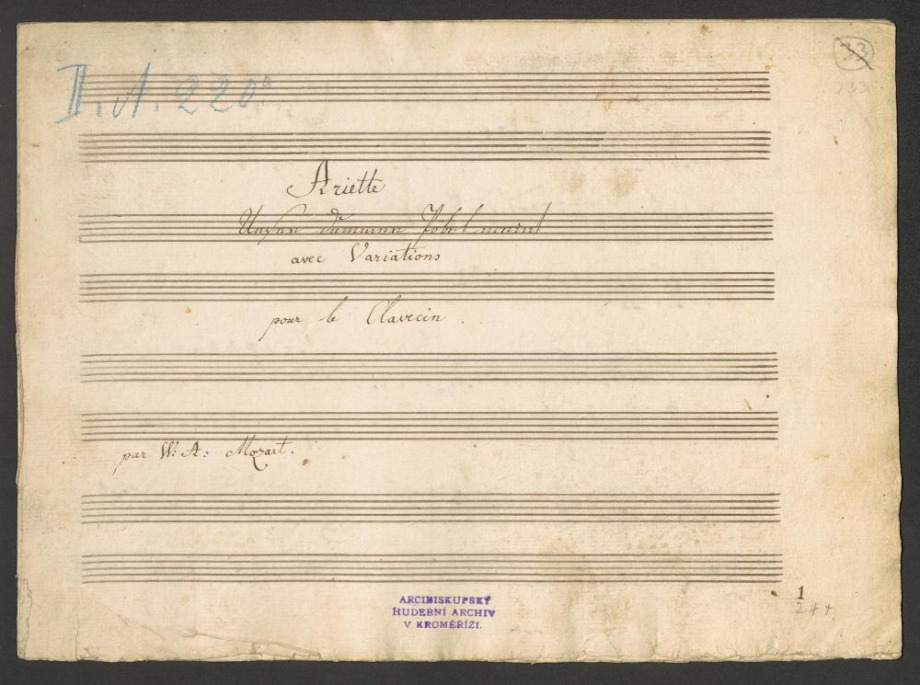 II. A. 220a
33
133
Ariette
Unser dummer Pöbel meint
avec Variations
pour le Clavecin.
par W: A: Mozart.
1
244
ARCIBISKUPSKÝ
HUDEBNÍ ARCHIV
V KROMĚŘÍŽI.